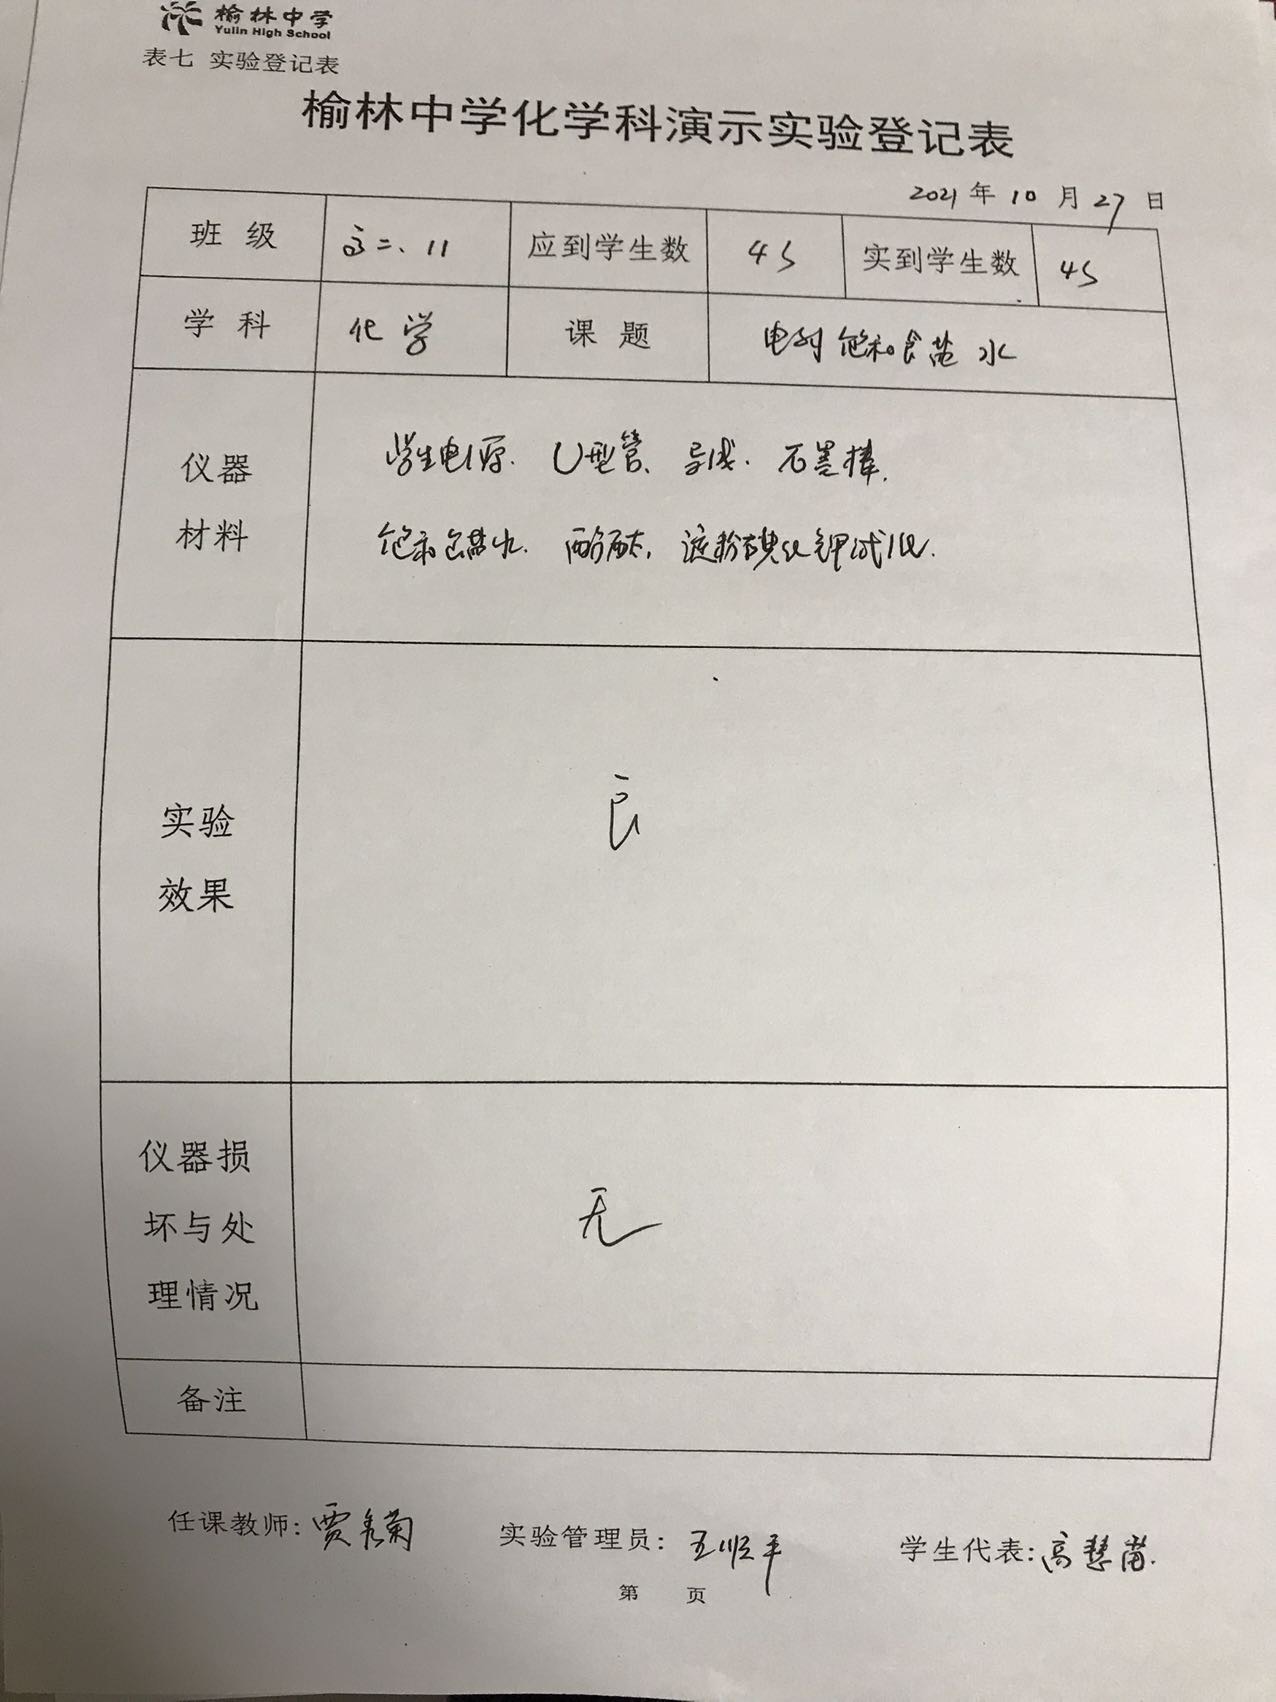 榆林中学
Yulin High School
表七 实验登记表
榆林中学化学科演示实验登记表
2021年10月27日
班级 高二、11 应到学生数 45 实到学生数 45
学科 化学 课题 电解饱和食盐水
仪器材料
学生电源、U型管、导线、石墨棒、
饱和食盐水、酚酞、淀粉碘化钾试纸.
实验效果
良
仪器损坏与处理情况
无
备注
任课教师:贾秀菊 实验管理员:王顺平 学生代表:高慧
第 页